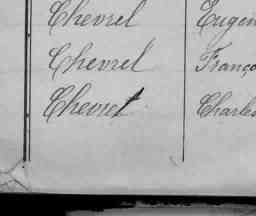 Chevrel Eugèn
Chevrel Franço
Chevret Charles